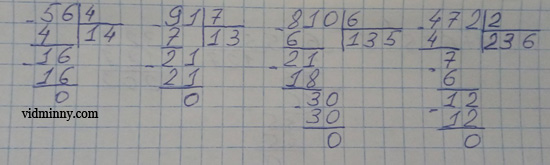 -56|4
4|14
-16
16
0
-91|7
7|13
-21
21
0
-810|6
6|135
-21
18
-30
30
0
-472|2
4|236
-7
6
-12
12
0
vidminny.com